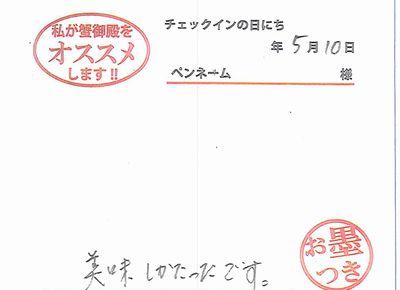 私が蟹御殿を
オススメ
します!!
チェックインの日にち
年 5月 10日
ペンネーム 様
美味しかったです。
お墨
つき